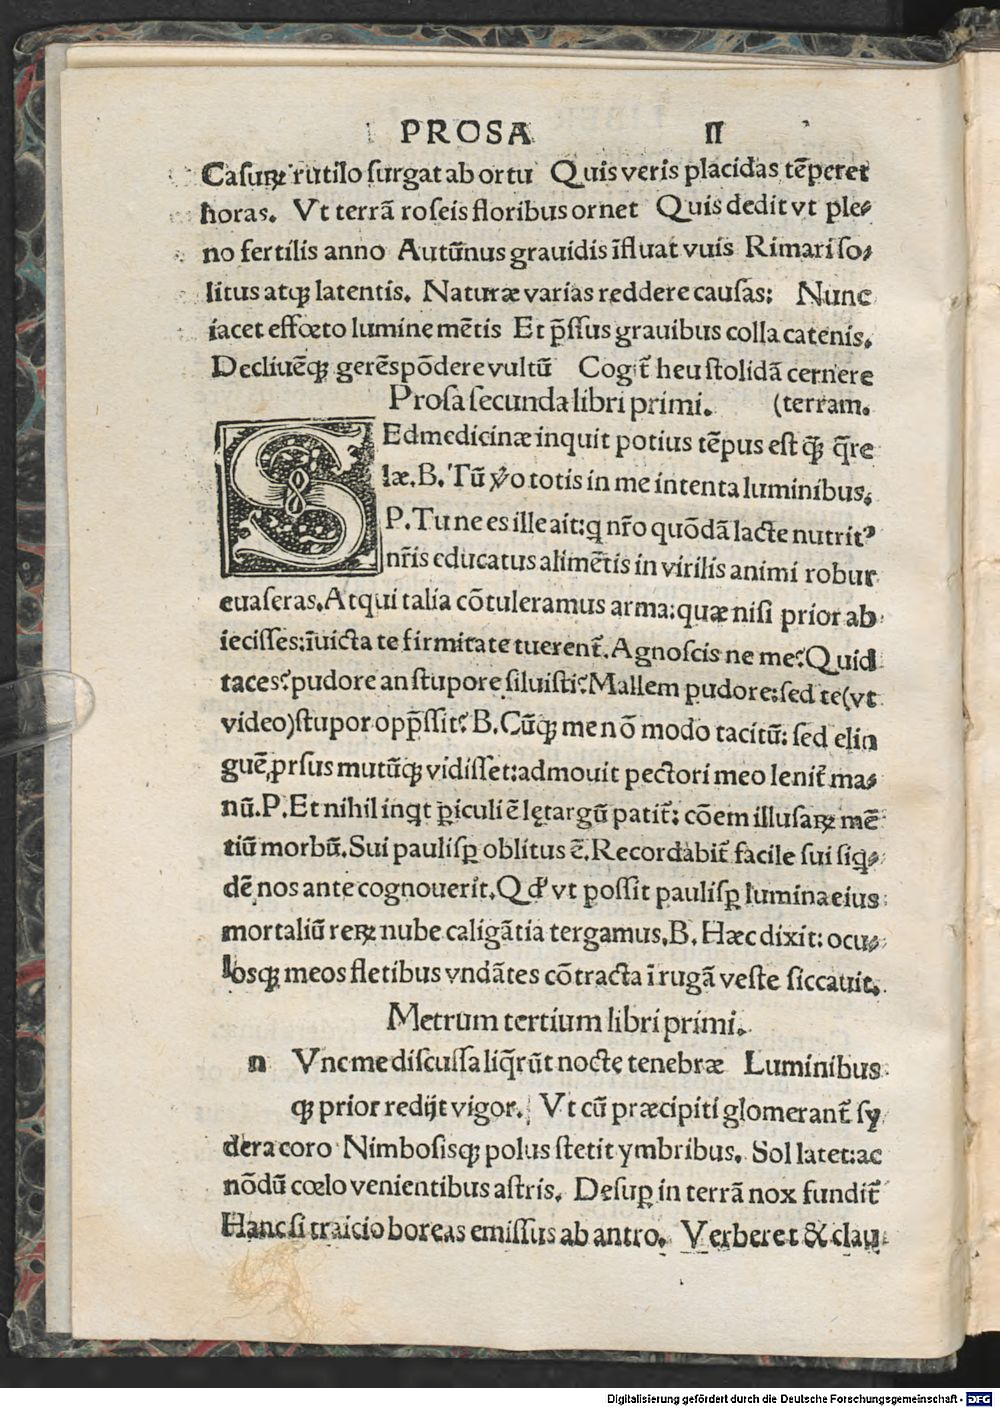 PROSA II
Casuꝝ rutilo surgat ab ortu Quis veris placidas tēperet
horas. Vt terrā roseis floribus ornet Quis dedit vt ple⸗
no fertilis anno Autūnus grauidis īfluat vuis Rimari so⸗
litus atqꝫ latentis. Naturæ varias reddere causas: Nunc
iacet effœto lumine mētis Et p̄ssus grauibus colla catenis.
Decliuēqꝫ gerēs pōdere vultū Cogit̄ heu stolidā cernere
Prosa secunda libri primi. (terram.
SEd medicinæ inquit potius tēpus est q̄ꝫ q̄re
læ. B. Tū ꝟo totis in me intenta luminibus.
P. Tu ne es ille ait: q nr̄o quōdā lacte nutritꝰ
nr̄is educatus alimētis in virilis animi robur
euaseras. Atqui talia cōtuleramus arma: quæ nisi prior ab
iecisses: īuicta te firmitate tuerent̄. Agnoscis ne me? Quid
taces? pudore an stupore siluisti? Mallem pudore: sed te (vt
video) stupor opp̄ssit? B. Cūqꝫ me nō modo tacitū: sed elin
guē ꝓrsus mutūqꝫ vidisset: admouit pectori meo lenit̄ ma⸗
nū. P. Et nihil inqt ꝑiculi ē lętargū patit̄: cōem illusaꝝ mē
tiū morbū. Sui paulisꝑ oblitus ē. Recordabit̄ facile sui siq⸗
dē nos ante cognouerit. Qd' vt possit paulisꝑ lumina eius
mortaliū reꝝ nube caligātia tergamus. B. Hæc dixit: ocu⸗
losqꝫ meos fletibus vndātes cōtracta ī rugā veste siccauit.
Metrum tertium libri primi.
n Vnc me discussa liq̄rūt nocte tenebræ Luminibus
qꝫ prior redijt vigor. Vt cū præcipiti glomerant̄ sy
dera coro Nimbosisqꝫ polus stetit ymbribus. Sol latet: ac
nōdū cœlo venientibus astris. Desuꝑ in terrā nox fundit̄
Hanc si traicio boreas emissus ab antro. Verberet & clau
Digitalisierung gefördert durch die Deutsche Forschungsgemeinschaft - DFG